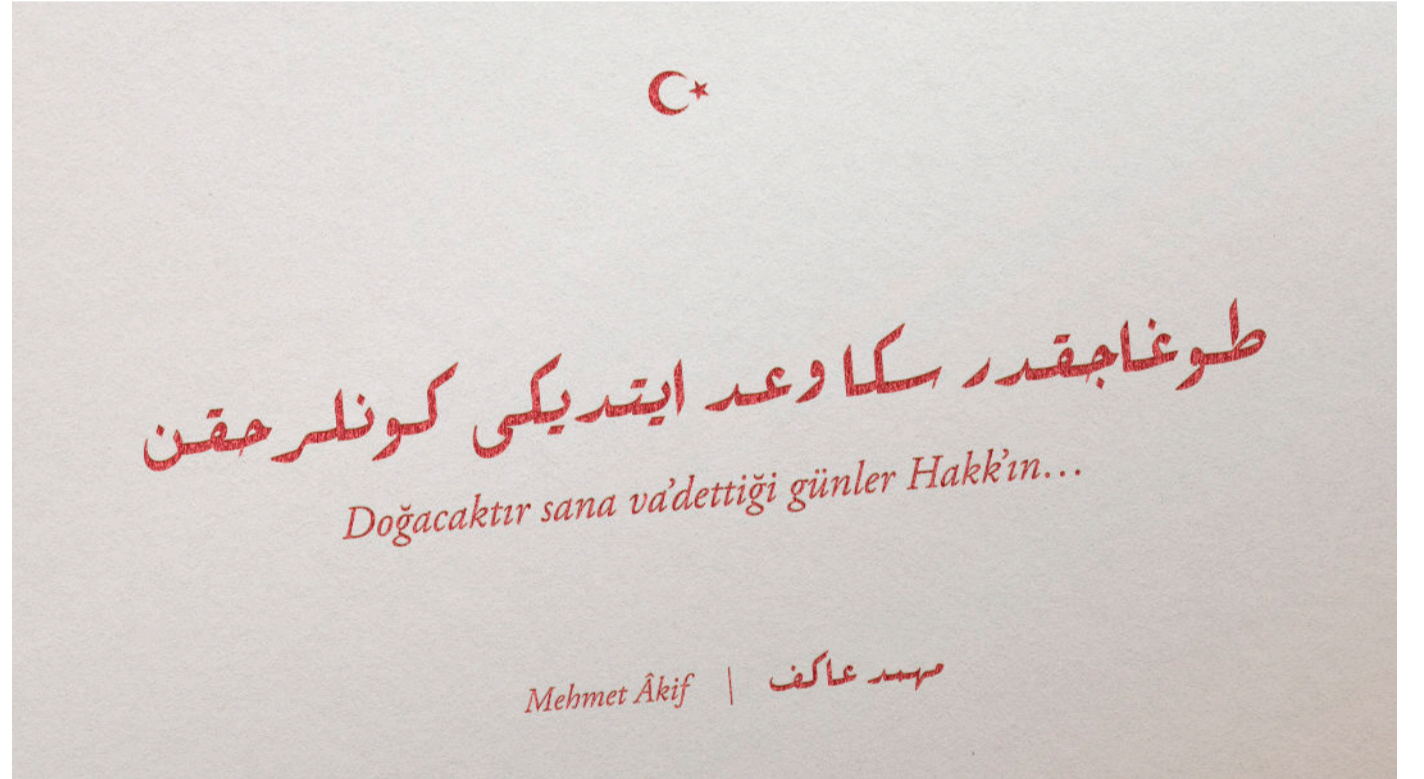 طوغاجقدر سكا وعد ايتديكى كونلر حقن
Doğacaktır sana va'dettiği günler Hakk'ın...
Mehmet Âkif | مهمد عاكف